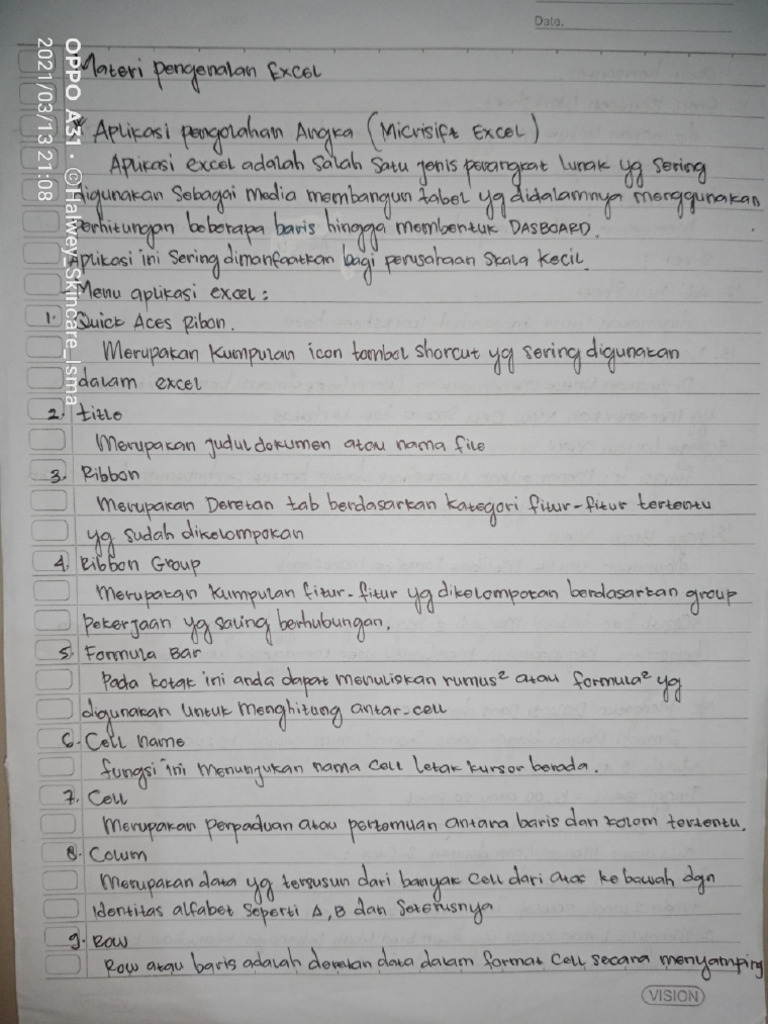 Date.
Materi pengenalan Excel
* Aplikasi pengolahan Angka (Micrisift Excel)
Aplikasi excel adalah salah satu jenis perangkat lunak yg sering
digunakan sebagai media membangun tabel yg didalamnya menggunakan
Perhitungan beberapa baris hingga membentuk DASBOARD.
Aplikasi ini sering dimanfaatkan bagi perusahaan skala kecil.
- Menu aplikasi excel :
1. Quick Aces Ribon.
Merupakan kumpulan icon tombol shorcut yg sering digunakan
dalam excel
2. title
Merupakan judul dokumen atau nama file
3. Ribbon
Merupakan Deretan tab berdasarkan kategori fitur-fitur tertentu
yg sudah dikelompokan
4. Ribbon Group
Merupakan kumpulan fitur-fitur yg dikelompokan berdasarkan group
pekerjaan yg saling berhubungan.
5. Formula Bar
Pada kotak ini anda dapat menuliskan rumus² atau formula² yg
digunakan untuk menghitung antar-cell
6. Cell name
fungsi ini menunjukan nama cell letak kursor berada.
7. Cell
Merupakan perpaduan atau pertemuan antara baris dan kolom tertentu.
8. Colum
Merupakan data yg tersusun dari banyak cell dari atas ke bawah dgn
Identitas alfabet seperti A, B dan seterusnya
9. Row
Row atau baris adalah deretan data dalam format cell secara menyamping
VISION
OPPO A31 · @Halwey_Skincare_Isma
2021/03/13 21:08